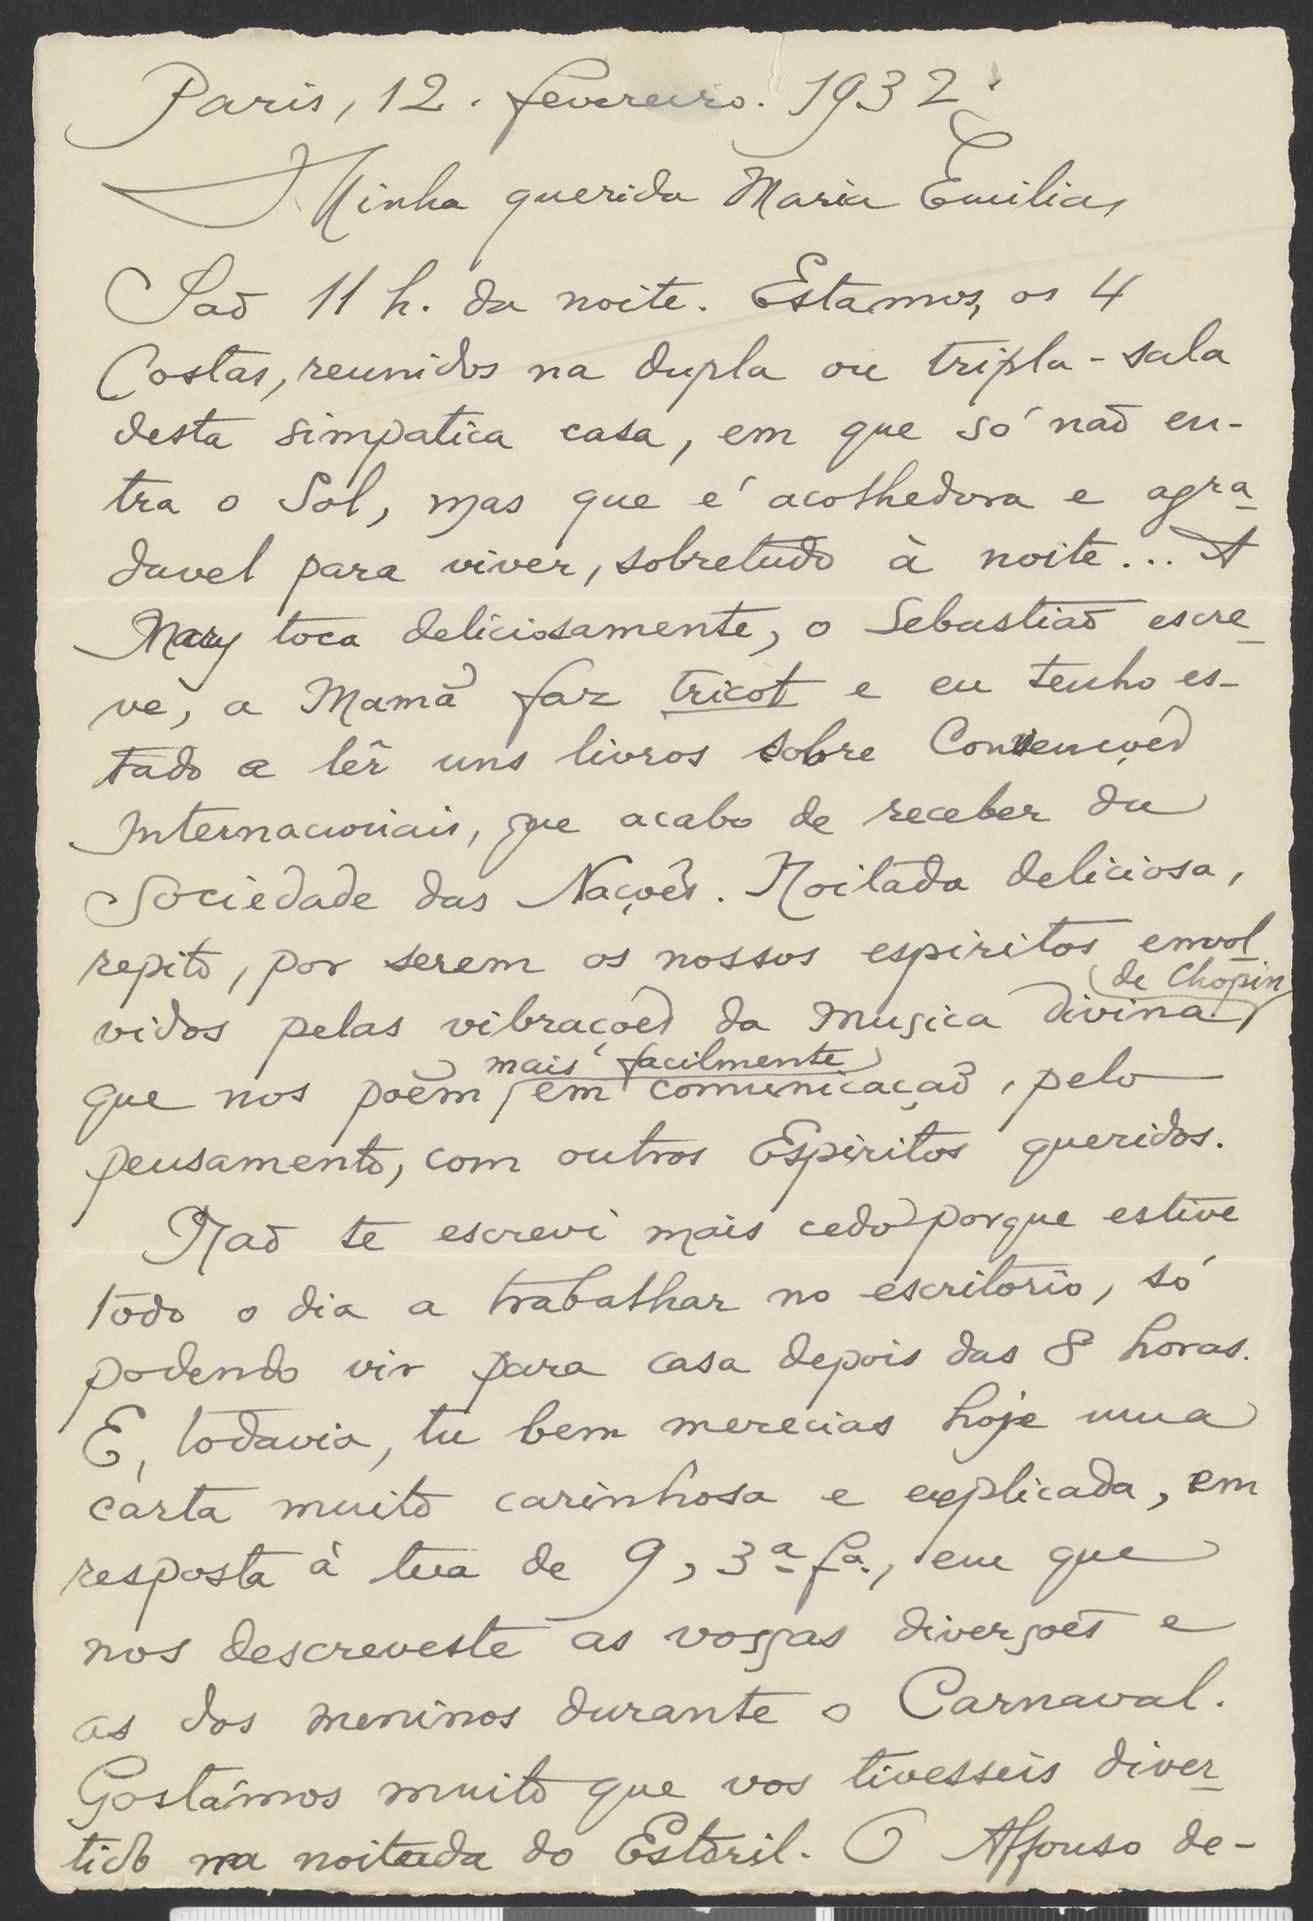 Paris, 12. fevereiro. 1932.
Minha querida Maria Emilia,
Saõ 11 h. da noite. Estamos, os 4
Costas, reunidos na dupla ou tripla-sala
desta simpatica casa, em que só naõ en-
tra o Sol, mas que é acolhedora e agra-
davel para viver, sobretudo à noite... A
Mary toca deliciosamente, o Sebastiaõ escre-
ve, a Mamã faz tricot e eu tenho es-
tado a lêr uns livros sobre Convençoẽs
Internacionais, que acabo de receber da
Sociedade das Naçoẽs. Noitada deliciosa,
repito, por serem os nossos espiritos envol-
de Chopin
vidos pelas vibraçoẽs da musica divina
mais facilmente
que nos poẽm em comunicaçaõ, pelo
pensamento, com outros Espiritos queridos.
Naõ te escrevi mais cedo porque estive
todo o dia a trabalhar no escritorio, só
podendo vir para casa depois das 8 horas.
E, todavia, tu bem merecias hoje uma
carta muito carinhosa e explicada, em
resposta à tua de 9, 3ª fa., em que
nos descreveste as vossas diversoẽs e
as dos meninos durante o Carnaval.
Gostámos muito que vos tivesseis diver-
tido na noitada do Estoril. O Affonso de-